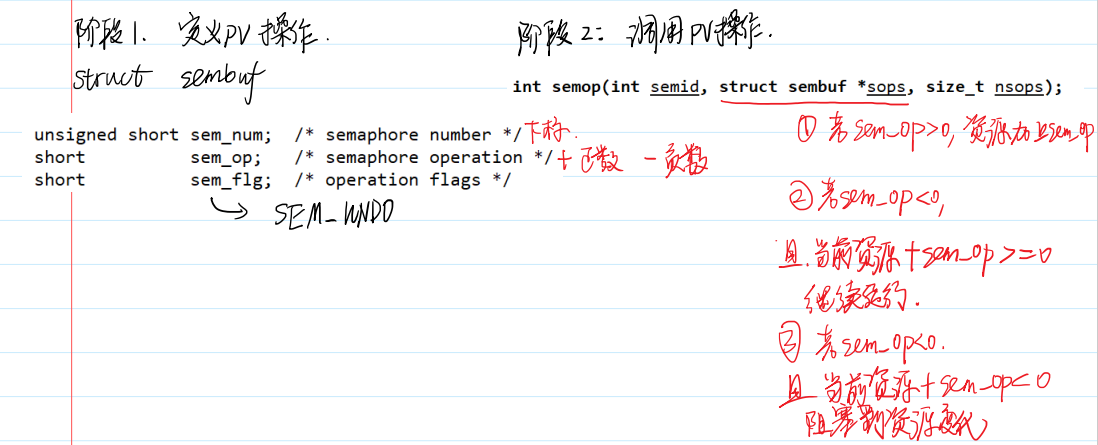 阶段1. 定义PV操作.
struct sembuf
unsigned short sem_num; /* semaphore number */ 下标.
short sem_op; /* semaphore operation */ +正数 -负数
short sem_flg; /* operation flags */
SEM_UNDO
阶段2: 调用PV操作.
int semop(int semid, struct sembuf *sops, size_t nsops);
① 若sem_op>0, 资源加上sem_op
② 若sem_op<0,
且 当前资源+sem_op>=0
继续运行.
③ 若sem_op<0.
且 当前资源+sem_op<0
阻塞到资源变化